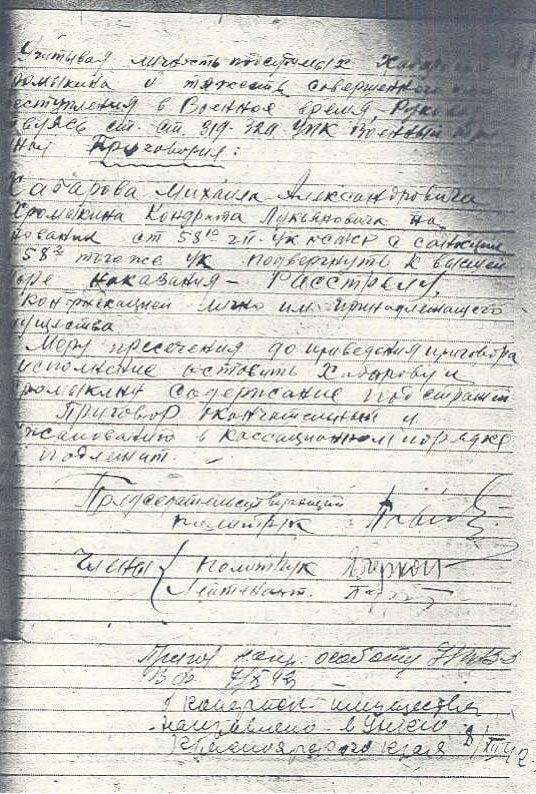 Учитывая личность подсудимых Хабар
ромыкина и тяжесть совершенного
еступления в Военное время, Руково
дуясь ст. ст. 319-320 УПК Военный
нал Приговорил:
Хабарова Михаила Александровича
Хромыкина Кондрата Лукьяновича на
новании ст 58¹⁰ ч II УК РСФСР с санкции
58² того же УК подвергнуть к высшей
мере наказания – Расстрелу,
конфискацией лично им принадлежащего
мущества.
Меру пресечения до приведения приговора
исполнение оставить Хабарову и
ромыкину содержание под стражей
Приговор окончательный и
жалованию в кассационном порядке
подлежит. –
Председательствующий
политрук
Члены { политрук
Лейтенант.
особому
О имущества
направлено в УНКВД
Красноярского края 8/XII 42